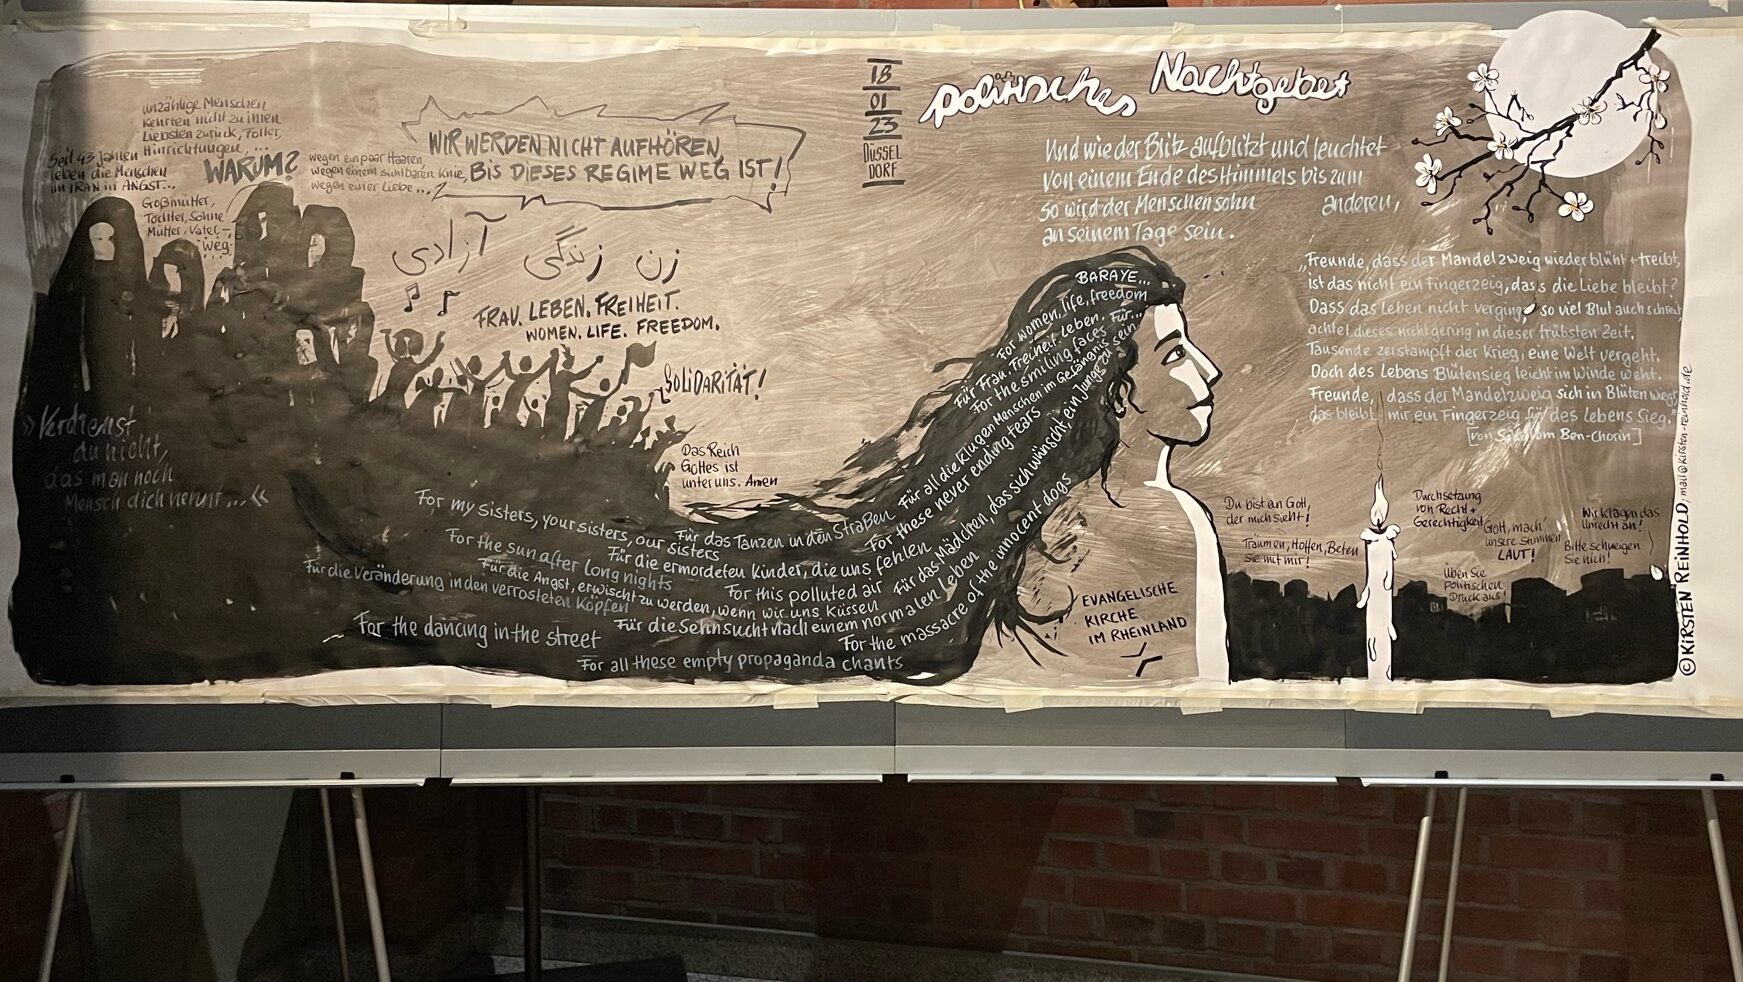 unzählige Menschen
kehrten nicht zu ihren
Liebsten zurück, Folter,
Hinrichtungen, ...
Seit 43 Jahren
leben die Menschen
im IRAN in ANGST...
WARUM?
wegen ein paar Haaren,
wegen einem sichtbaren Knie,
wegen einer Liebe...?
Großmütter,
Töchter, Söhne
Mütter, Väter –
weg.
WIR WERDEN NICHT AUFHÖREN,
BIS DIESES REGIME WEG IST!
زن زندگی آزادی
FRAU. LEBEN. FREIHEIT.
WOMEN. LIFE. FREEDOM.
SOLiDARiTÄT!
Das Reich
Gottes ist
unter uns. Amen
»Verdienst
du nicht,
das man noch
Mensch dich nennt...«
18
01
23
DÜSSEL
DORF
politisches Nachtgebet
Und wie der Blitz aufblitzt und leuchtet
von einem Ende des Himmels bis zum
anderen,
so wird der Menschensohn
an seinem Tage sein.
„Freunde, dass der Mandelzweig wieder blüht + treibt,
ist das nicht ein Fingerzeig, dass die Liebe bleibt?
Dass das Leben nicht verging, so viel Blut auch schreit,
achtet dieses nicht gering in dieser trübsten Zeit.
Tausende zerstampft der Krieg, eine Welt vergeht.
Doch des Lebens Blütensieg leicht im Winde weht.
Freunde, dass der Mandelzweig sich in Blüten wiegt,
das bleibt mir ein Fingerzeig für des Lebens Sieg."
[von Schalom Ben-Chorin]
BARAYE...
For women, life, freedom
Für Frau. Freiheit. Leben. Für...
For the smiling faces
Für all die klugen Menschen im Gefängnis
For these never ending tears
Für das Mädchen, das sich wünscht, ein Junge zu sein
For the massacre of the innocent dogs
For my sisters, your sisters, our sisters
Für das Tanzen in den Straßen
For the sun after long nights
Für die ermordeten Kinder, die uns fehlen
Für die Veränderung in den verrosteten Köpfen
Für die Angst, erwischt zu werden, wenn wir uns küssen
For this polluted air
Für die Sehnsucht nach einem normalen Leben
For the dancing in the street
For all these empty propaganda chants
EVANGELISCHE
KIRCHE
IM RHEINLAND
Du bist ein Gott,
der mich sieht!
Träumen, Hoffen, Beten
Sie mit mir!
Durchsetzung
von Recht +
Gerechtigkeit
Gott, mach'
unsere Stimmen
LAUT!
Üben Sie
politischen
Druck aus!
Wir klagen das
Unrecht an!
Bitte schweigen
Sie nicht!
© KiRSTEN REiNHOLD, mail@kirsten-reinhold.de